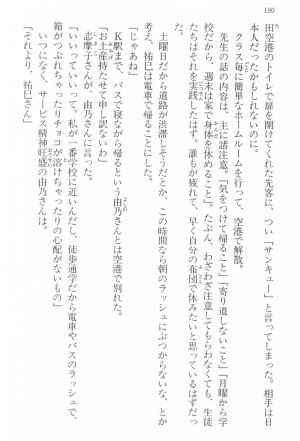 180
田空港のトイレで扉を開けてくれた先客に、つい「サンキュー」と言ってしまった。相手は日
本人だったかもしれないのに。
クラス毎に簡潔なホームルームを行って、空港で解散。
先生の話の内容は、主に諸注意。「気をつけて帰ること」「寄り道しないこと」「月曜から学
校だから、週末は家で身体を休めること」。たぶん、わざわざ注意してもらわなくても、生徒
たちはそれを実践したはず。誰もが疲れて、早く自分の布団で休みたいと思っているはずだっ
た。
土曜日だから道路が渋滞しそうだとか、この時間なら朝のラッシュにぶつからないな、とか
考え、祐巳は電車で帰ることにした。
「じゃあね」
K駅まで、バスで寝ながら帰るという由乃さんとは空港で別れた。
「お土産持たせて申し訳ないわ」
志摩子さんが、由乃さんに言った。
「いいっていいって。私が一番学校に近いんだし、徒歩通学だから電車やバスのラッシュで、
箱がつぶれちゃったりチョコが溶けちゃったりの心配がないもの」
いつになく、サービス精神旺盛の由乃さんは。
「それより、祐巳さん」